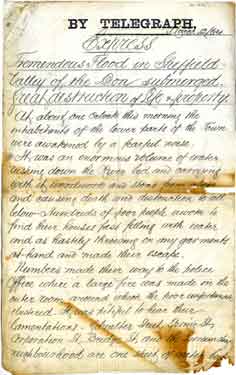 BY TELEGRAPH.
March 12/64
Express
Tremendous Flood in Sheffield
Valley of the Don submerged.
Great destruction of life & property.
At about one o'clock this morning the
inhabitants of the lower parts of the Town
were awakened by a fearful noise.
It was an enormous volume of water
rushing down the River bed and carrying
with it woodwork and stone
and causing death and destruction to all
below – hundreds of poor people awoke to
find their houses fast filling with water
and as hastily throwing on any garments
at hand and made their escape.
Numbers made their way to the police
Office where a large fire was made in the
outer room, around which the poor
clustered. It was pitiful to hear their
lamentations.
Corporation St, Bridge St, and the surrounding
neighbourhood are one sheet of water